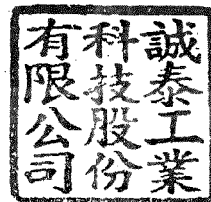 誠泰工業
科技股份
有限公司